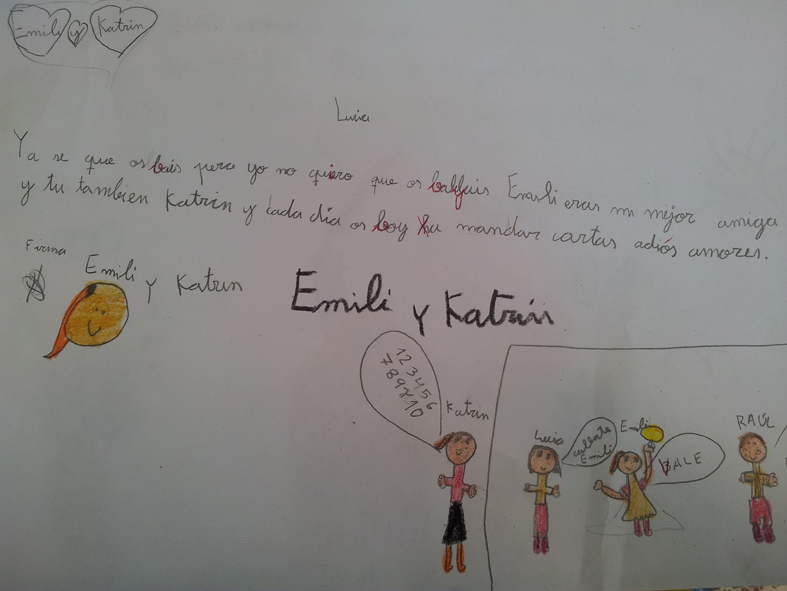 Emili y Katrin
Lucia
Ya se que os bais pero yo no quiero que os bakfais Emili eras mi mejor amiga
y tu tambien Katrin y cada dia os boy ha mandar cartas adiós amores.
Firma
Emili y Katrin
Emili y Katrin
1 2 3 4 5 6
7 8 9 y 10
Katrin
Lucia
callate
Emili
Emili
VALE
RAÚL